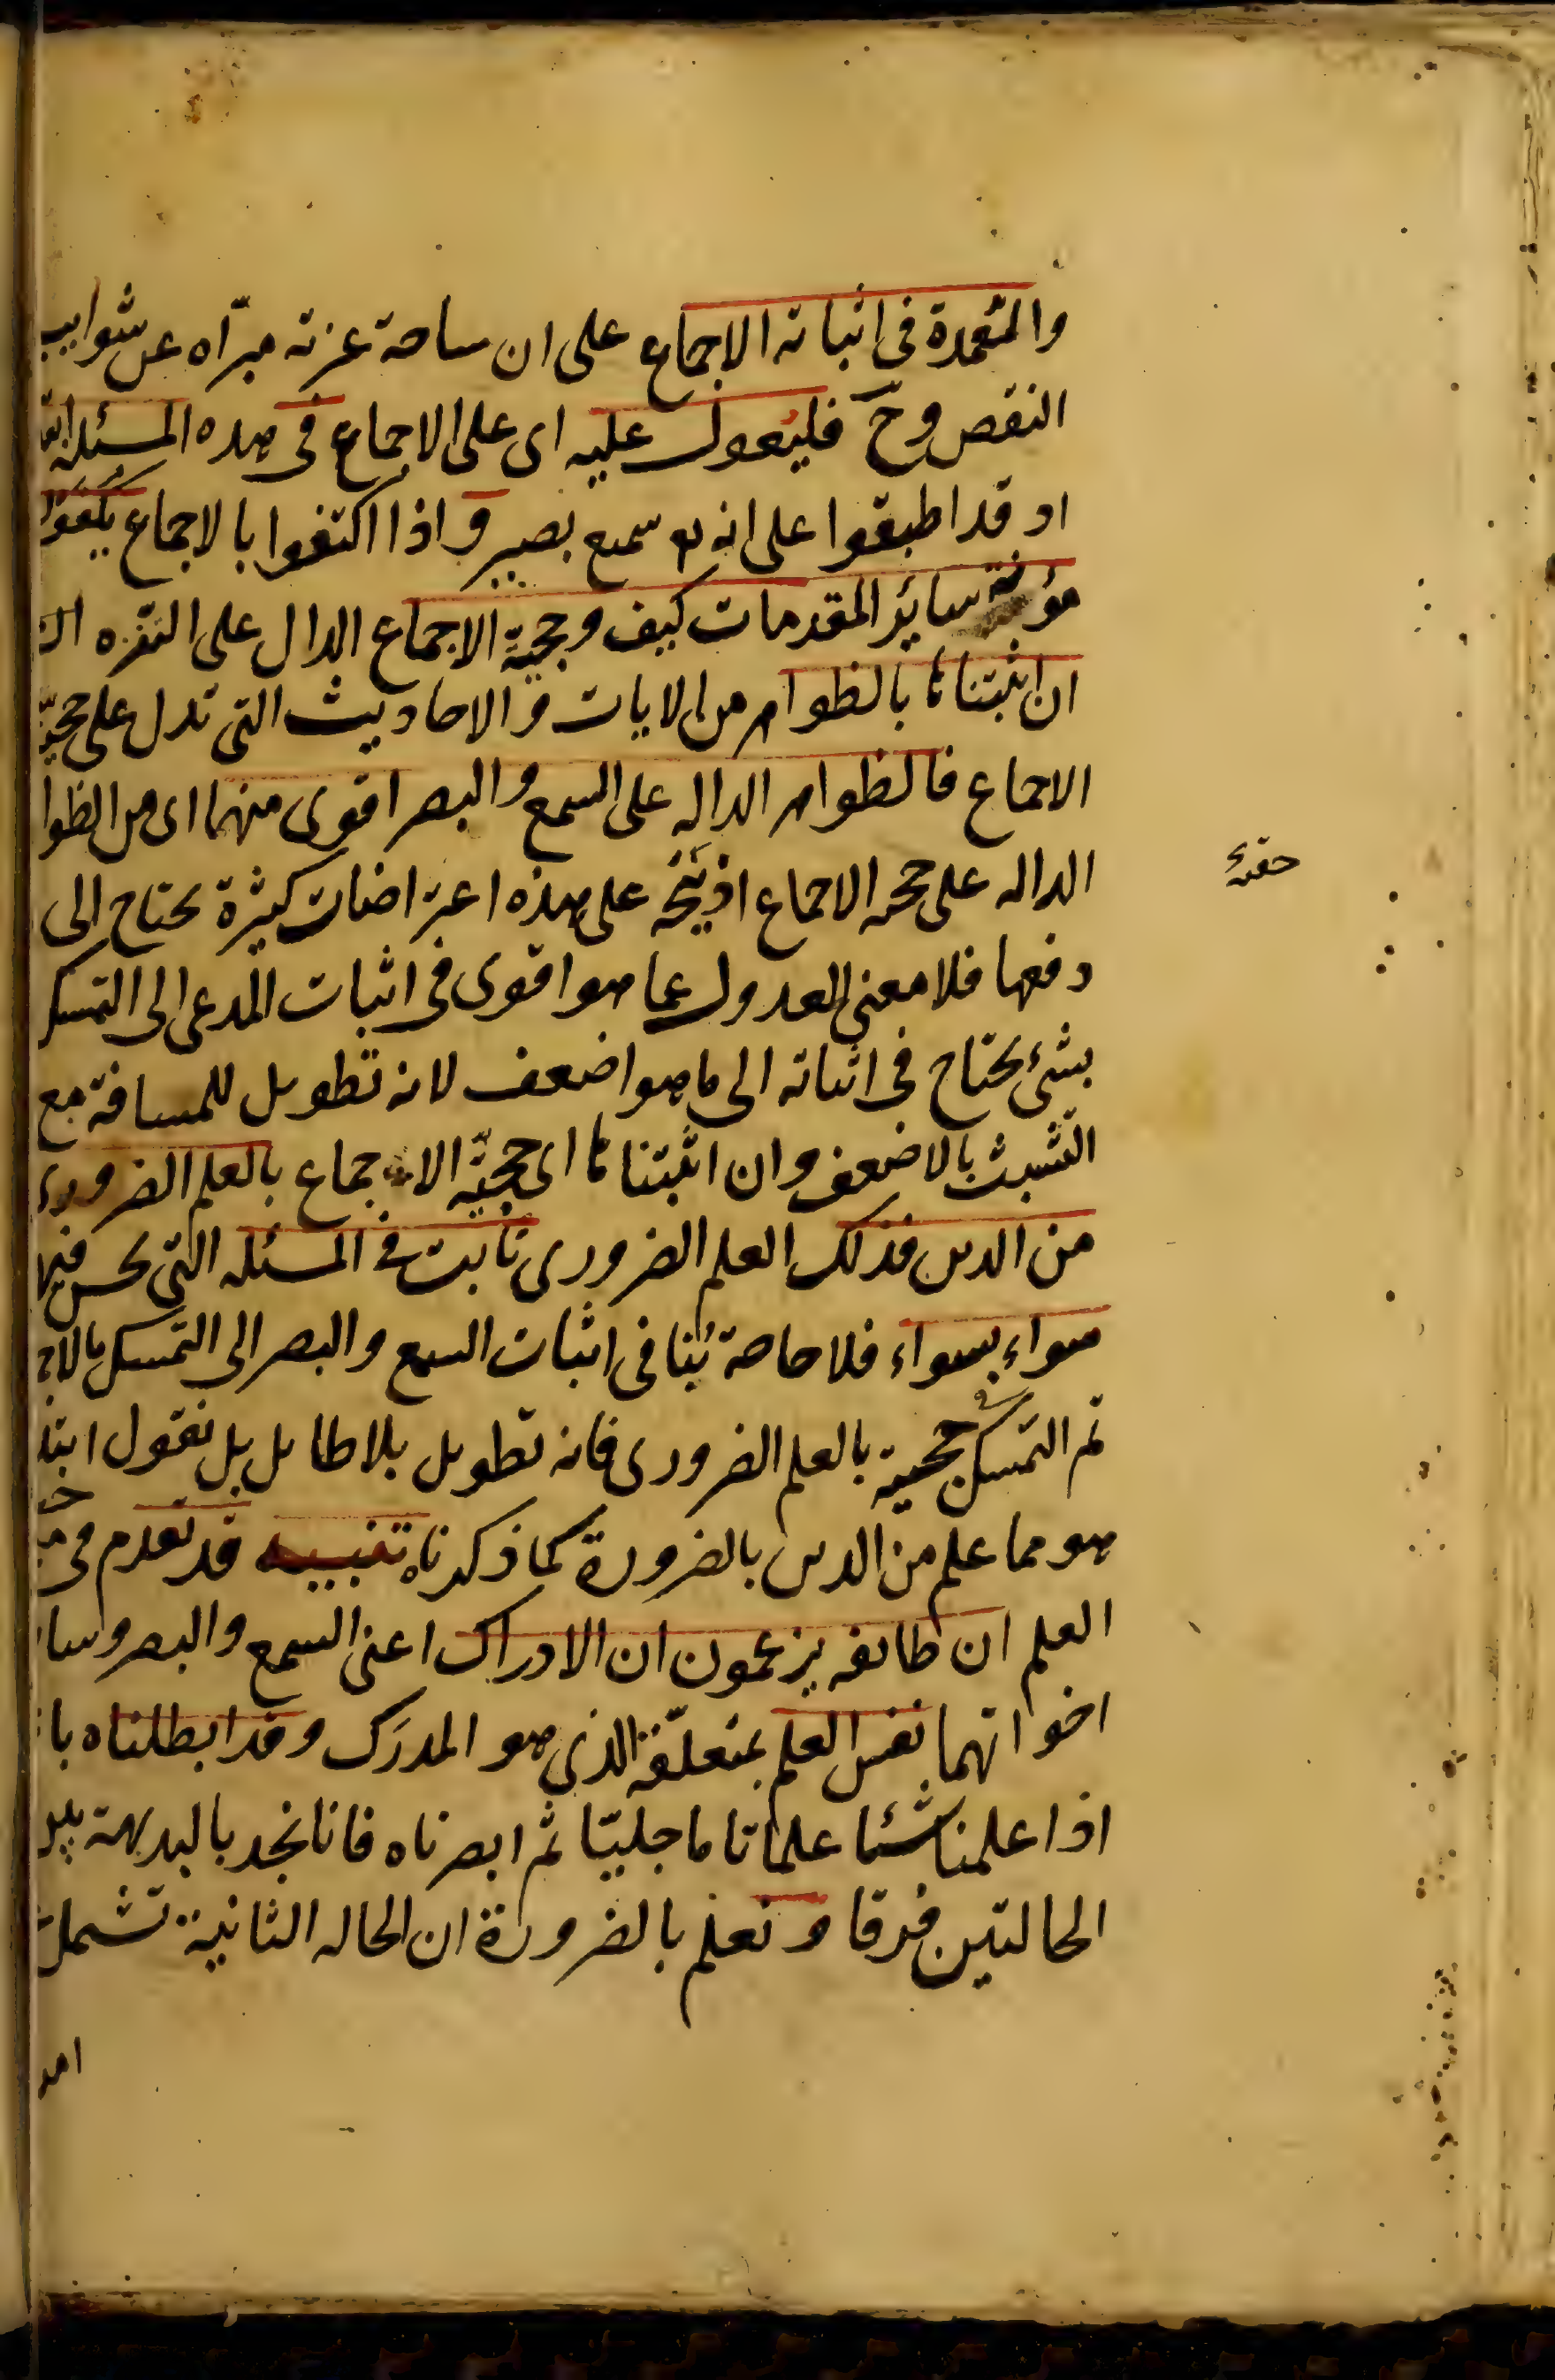 والعمدة فى اثباته الاجماع على ان ساحة عزته مبرّاه عن شوايب
النقص وحَ فليعول عليه اى على الاجماع فى هذه المسئلة
اد قد اطبقوا على انه سميع بصير و اذا اكتفوا بالاجماع يكفوا
مؤنة سائر المقدمات كيف و حجيّة الاجماع الدال على التنزه
ان اثبتناها بالظواهر من الايات و الاحاديث التى تدل على حجيّة
الاجماع فالظواهر الداله على السمع و البصر اقوى منهما اى من الظوا
الداله على حجه الاجماع اذ يتجه على هذه اعتراضات كثيرة يحتاج الى
دفعها فلا معنى للعدول عما هو اقوى فى اثبات المدعى الى التمسك
بشئ يحتاج فى اثباته الى ما هو اضعف لانه تطويل للمسافة مع
التشبث بالاضعف و ان اثبتناها اى حجيّة الاجماع بالعلم الضرورى
من الدين فذلك العلم الضرورى ثابت فى المسئله التى نحن فيها
سواء بسواء فلا حاجة بنا فى اثبات السمع و البصر الى التمسك بالاج
ثم التمسك فى حجيته بالعلم الضرورى فانه تطويل بلا طايل بل نقول ابتدا
هو مما علم من الدين بالضرورة كما ذكرناه تنبيه قد تقدم فى
العلم ان طائفه يزعمون ان الادراك اعنى السمع و البصر و سا
اخواتهما نفس العلم بمتعلّقه الذى هو المدرَك و قد ابطلناه با
اذا علمنا شئا علما تاما جليّا ثم ابصرناه فانا نجد بالبديهة بين
الحالتين فرقا و نعلم بالضرورة ان الحاله الثانية تشمل